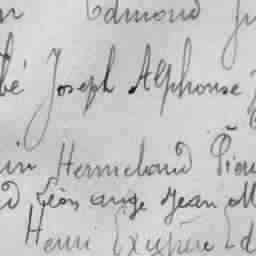 Edmond
bé Joseph Alphonse
Hermeland
Léon ange Jean M
Henri Exupère Ed